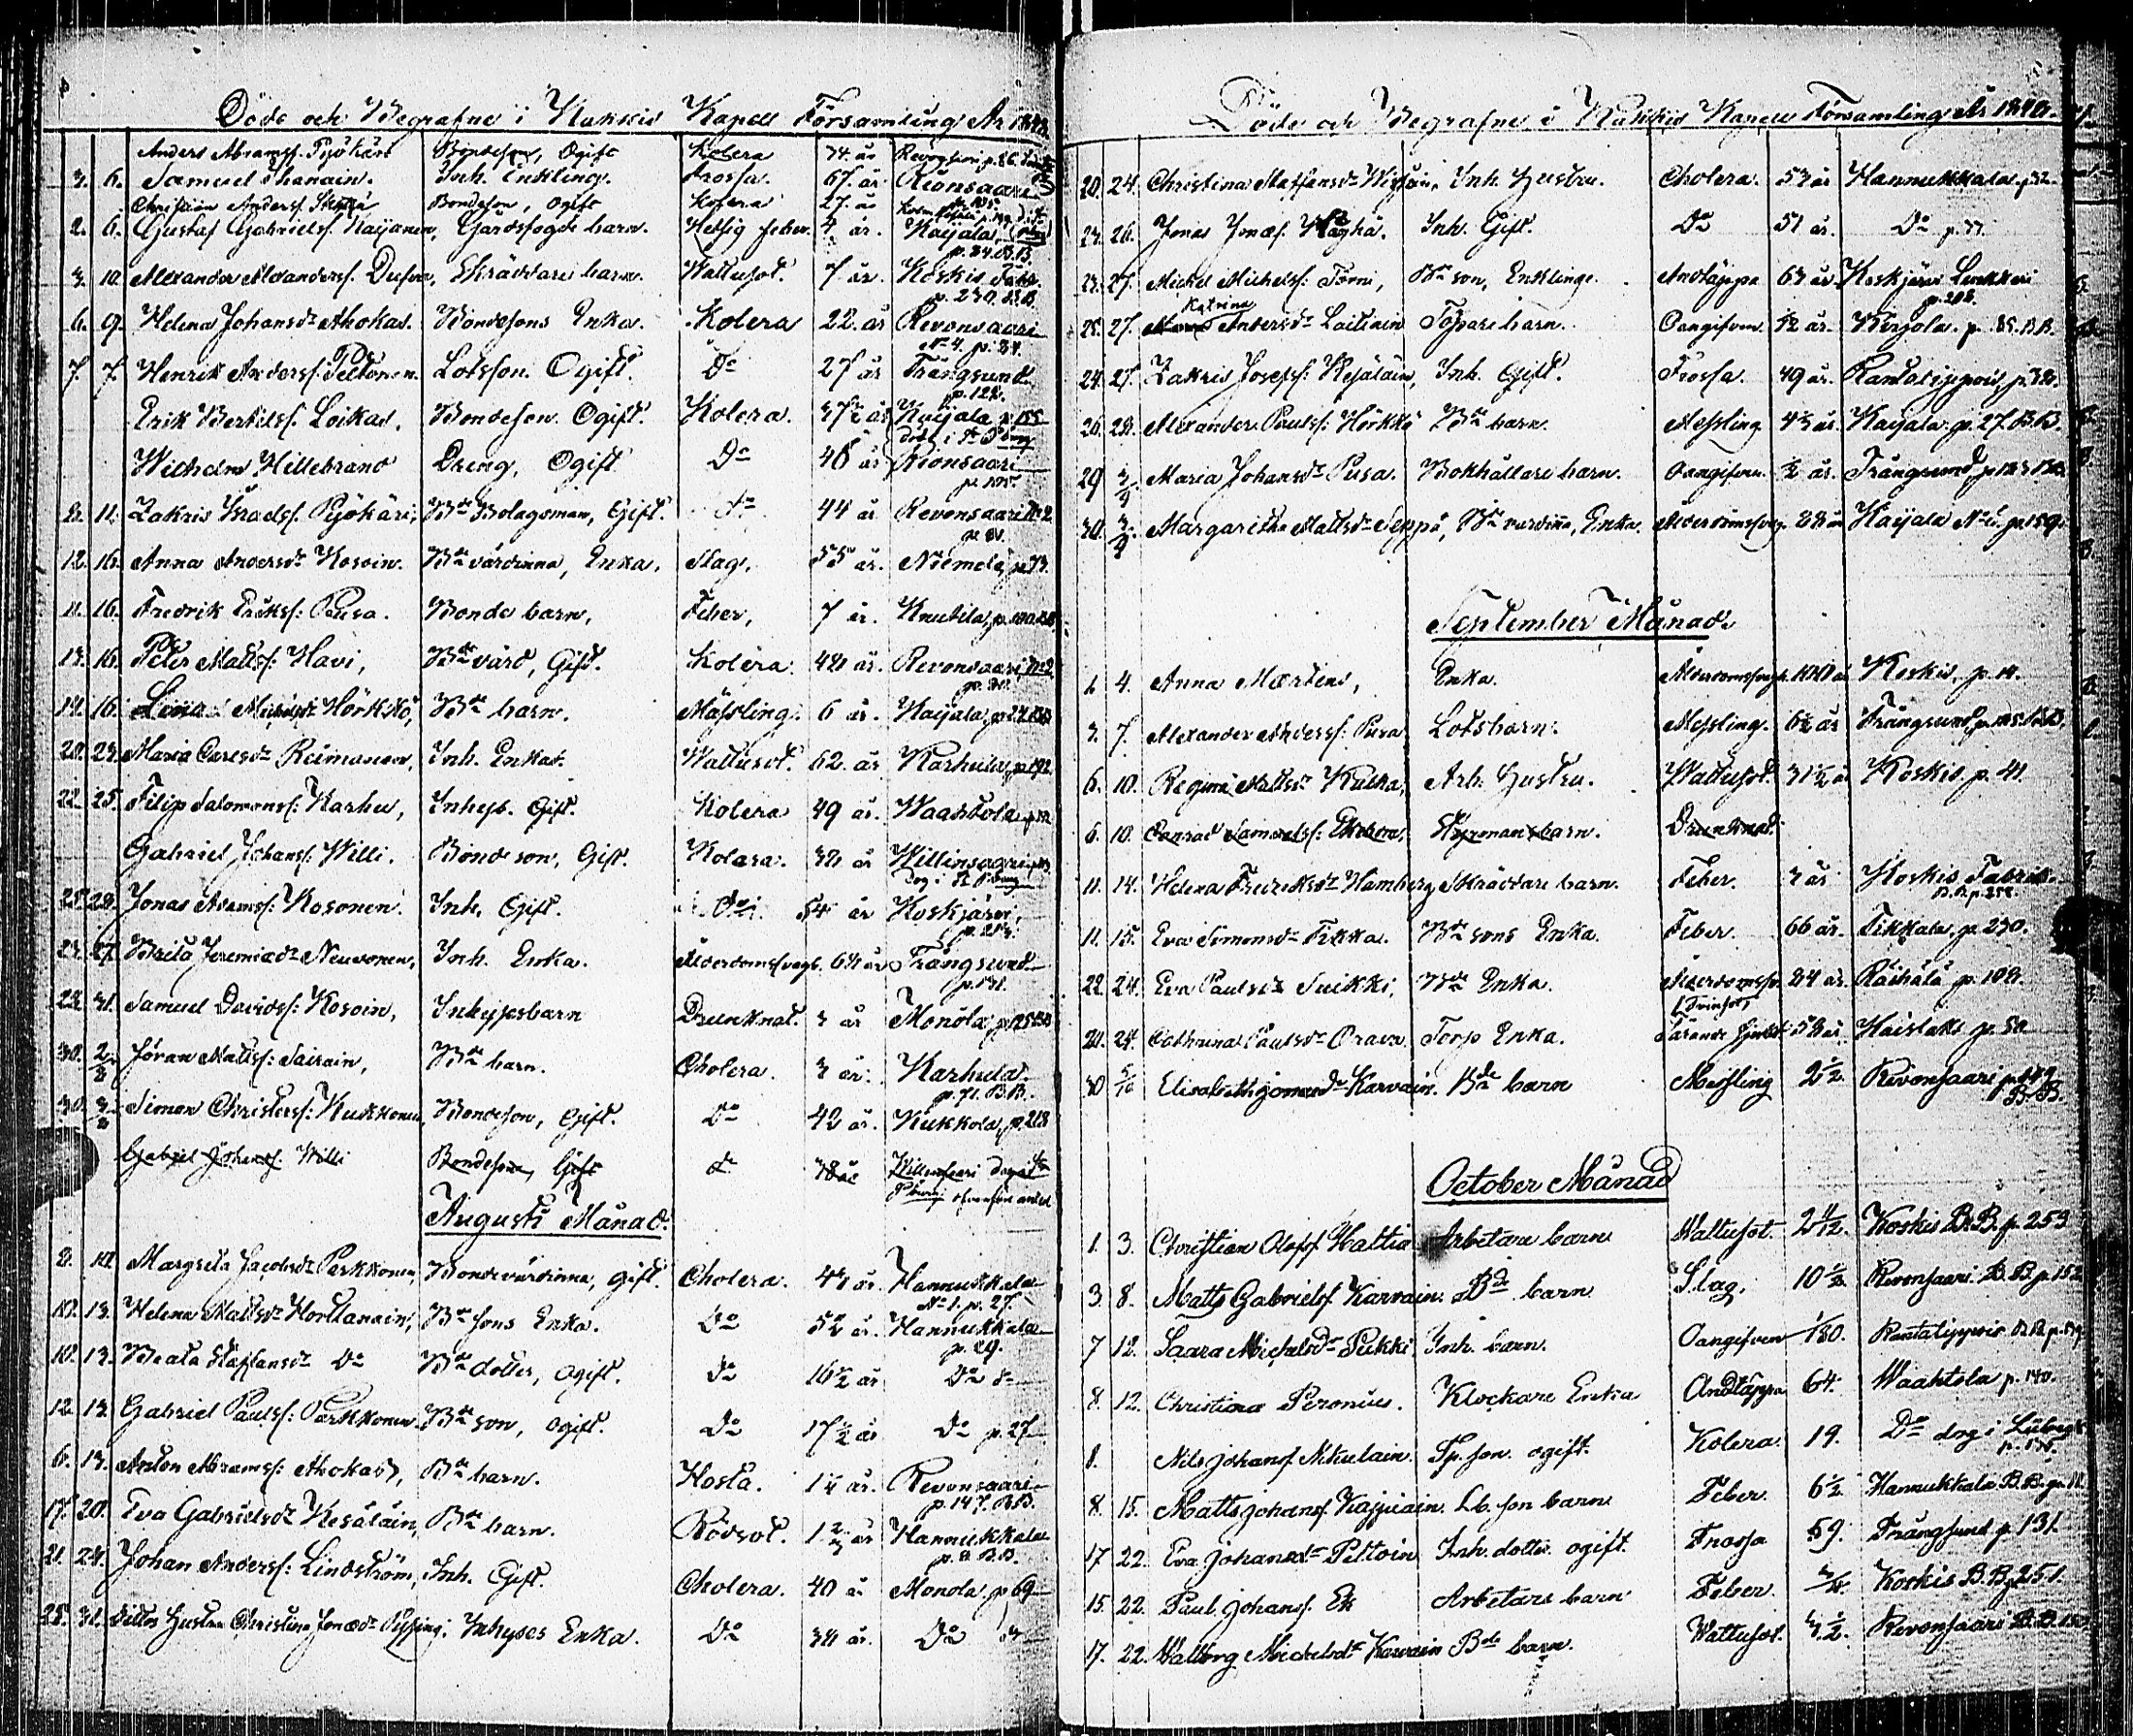 Döde och Begrafne i Kakkis Kapell Församling År
Anders Abramsf. Pyökäri Bondeson, Ogift Kolera 34. år Revonsaari p. 86.
3. 6. Samuel Ihanain. Inh. Enkling. Frossa. 67. år. Rionsaari
Christian Andersf. Bondeson, ogift Kolera 27. år
2. 6. Gustaf Gabrielsf. Kaijanen, Gårdsfogde barn. Hetsig feber. 4 år. Kaijala,
p. 34. B.B.
3. 10. Alexander Alexandersf. Dufva, Skräddare barn. Wattusot. 7 år. Koskis Fabr.
p. 230. B.B.
6. 9. Helena Johansdr Ahokas. Bondesons Enka. Kolera 22. år Revonsaari
No 4. p. 34.
7. 7. Henrik Andersf. Peltonen. Lotsson. Ogift. Do 27 år Trångsund
p. 122.
Erik Bertilsf. Loikas. Bondeson. Ogift. Kolera. 37½ år Kaijala p. 155
död i St. Pburg
Wilhelm Hillebrand Dreng, Ogift Do 46 år Rionsaari
p. 105.
8. 11. Zakris Israelsf. Pyökäri, Bde Bolagsman, Gift. do 44 år Revonsaari No 2
12. 16. Anna Andersdr Kosoin. Bde värdinna, Enka. Slag. 55 år. Niemelä, p. 73.
11. 16. Fredrik Eriksf: Pausa. Bonde barn, Feber, 7 år. Knutila,
13. 16. Peter Mattsf: Havi, Bde värd, Gift. Kolera. 48 år. Revonsaari, No 2
14. 16. Lina Michelsdr Hörkkö, Bde barn. Mässling. 6 år. Kaijala,
20. 23. Maria Carlsdr Reimanen, Inh. Enka. Wattusot. 62. år Karhula, p. 192
22. 25. Filip Salomonsf: Karhu, Inhys. Gift. Kolera 49 år. Waahtola
Gabriel Johansf: Willi. Bonde son, Gift. Kolera. 38 år Willinsaari
Dog i St. Pburg
25. 28. Jonas Adamsf: Kosonen. Inh. Gift. do 54 år Koskjärvi,
23. 27. Brita Jeremiædr Neuvonen, Inh. Enka. Ålderdomssvagh. 64 år Trångsund
p. 131.
28. 31. Samuel Davidsf: Kosoin, Inhysesbarn Drunknat. 3 år Monola,
30. 2/8 Jöran Mattsf: Sairain, Bde barn. Cholera. 3 år. Karhula.
p. 71. B.B.
30. 3/8 Simon Christersf: Kukkonen, Bondeson, Gift. Do 42 år. Kukkola, p. 218
Gabriel Johansf. Willi Bondeson, Gift do 38 år Willinsaari dog i St.
Pburg
Augusti Månad.
8. 10. Margreta Jacobsdr Parkkonen, Bondevärdinna, gift. Cholera. 43 år. Hannukkala
No 1. p. 27.
10. 13. Helena Mattsdr Horttanain, Bde sons Enka. Do 52 år. Hannukkala
p. 29.
10. 13. Beata Staffansdr Do Bde dotter, ogift. do 16½ år Do do
12. 13. Gabriel Paulsf: Parkkonen. Bde son, ogift. do 17½ år Do p. 27
6. 13. Anton Abramsf: Ahokas, Bde barn. Hosta. 1¼ år. Revonsaari
p. 147. B.B.
17. 20. Eva Gabrielsdr Kesäläin, Bde barn. Rödsot. år Hannukkala
p. 8 B.B.
21. 24. Johan Andersf: Lindström, Inh. Gift. Cholera. 40 år Monola, p. 69
28. 31. Dittos Hustru Christina Jonædr Pyssing: Inhyses Enka. Do 38 år. Do do
Döde och Begrafne i Kakkis Kapell Församling År
20. 24. Christina Staffansdr Inh. Hustru. Cholera. 53 år Hannukkala p. 32.
24. 26. Jonas Jonæf. Inh. Gift. Do 51 år. Do p. 77.
23. 27. Michel Michelsf: Törni, Bde son, Enkling. Andtäppa 63 år. Koskjärvi
p. 208.
Katrina
25. 27. Andersdr Laitiain Torpare barn. Oangifven. ½ år. Werjola. p. 85. B.B.
24. 27. Zakris Josefsf: Kesäläin, Inh. Gift. Frossa. 49 år. Rantalippois, p. 38.
26. 28. Alexander Paulsf: Hörkkö Bde barn. Messling 4½ år. Kaijala. p. 27. B.B.
29 3/9. Maria Johansdr Pusa. Bokhållare barn. Oangifven. ½ år. Trångsund
30. 3/9 Margaretha Mattsdr Seppä, Bde värdinna, Enka. Ålderdomssvag. 88 år Kaijala p. 159.
September Månad.
1. 4. Anna Mærtens, Enka. Ålderdomssvagh. Koskis, p. 14.
3. 7. Alexander Andersf: Pusa Lotsbarn. Messling. 6½ år Trångsund,
6. 10. Regina Mattsdr Kulha, Arb. Hustru. Wattusot. 31½ år Koskis p. 41.
6. 10. Conrad Samuelsf: Styrmans barn. Drunknat.
11. 14. Helena Fredriksdr Hamberg Skräddare barn. Feber. 3 år Koskis Fabrik.
11. 15. Eva Simonsdr Tikka. Bde sons Enka. Feber. 66 år. Tikkala, p. 230.
22. 24. Eva Paulsdr Suikki, Bde Enka. Ålderdomssv. 84 år. Räihälä p. 108.
21. 24. Cathrina Paulsdr Orava. Torp Enka. 58 år. Haislaks p. 50
30 5/10 Elisabeth Karvain. Bde barn Messling 2½. Revonsaari p. 149
B.B.
October Månad
1. 3. Christian Olofsf. Hattia Arbetare barn Wattusot. Koskis B.B. p. 259
3. 8. Matts Gabrielsf. Karvain. Bde barn Slag. 10½. Revonsaari. B.B. p. 152
7 12. Saara Michelsdr Pukki Inh. barn. Oangifven Rantalippois B.B.
8. 12. Christina Peronius. Klockare Enka Andtäppa 64. Waahtola p. 140.
8. Nils Johansf Mikulain. Tp. son. ogift. Kolera. 19. Do dog i
8. 15. Matts Johansf. Lb. son barn Feber. 6½. Hannukkala B.B.
17 22. Eva Johansdr Peltoin Inh. dotter. ogift. Frossa 59. Trångsund p. 131.
15. 22. Paul Johansf. Ek Arbetare barn Feber. Koskis B.B. 251.
17. 22. Walborg Michelsdr Karvain Bde barn. Wattusot. 3½. Revonsaari B.B.